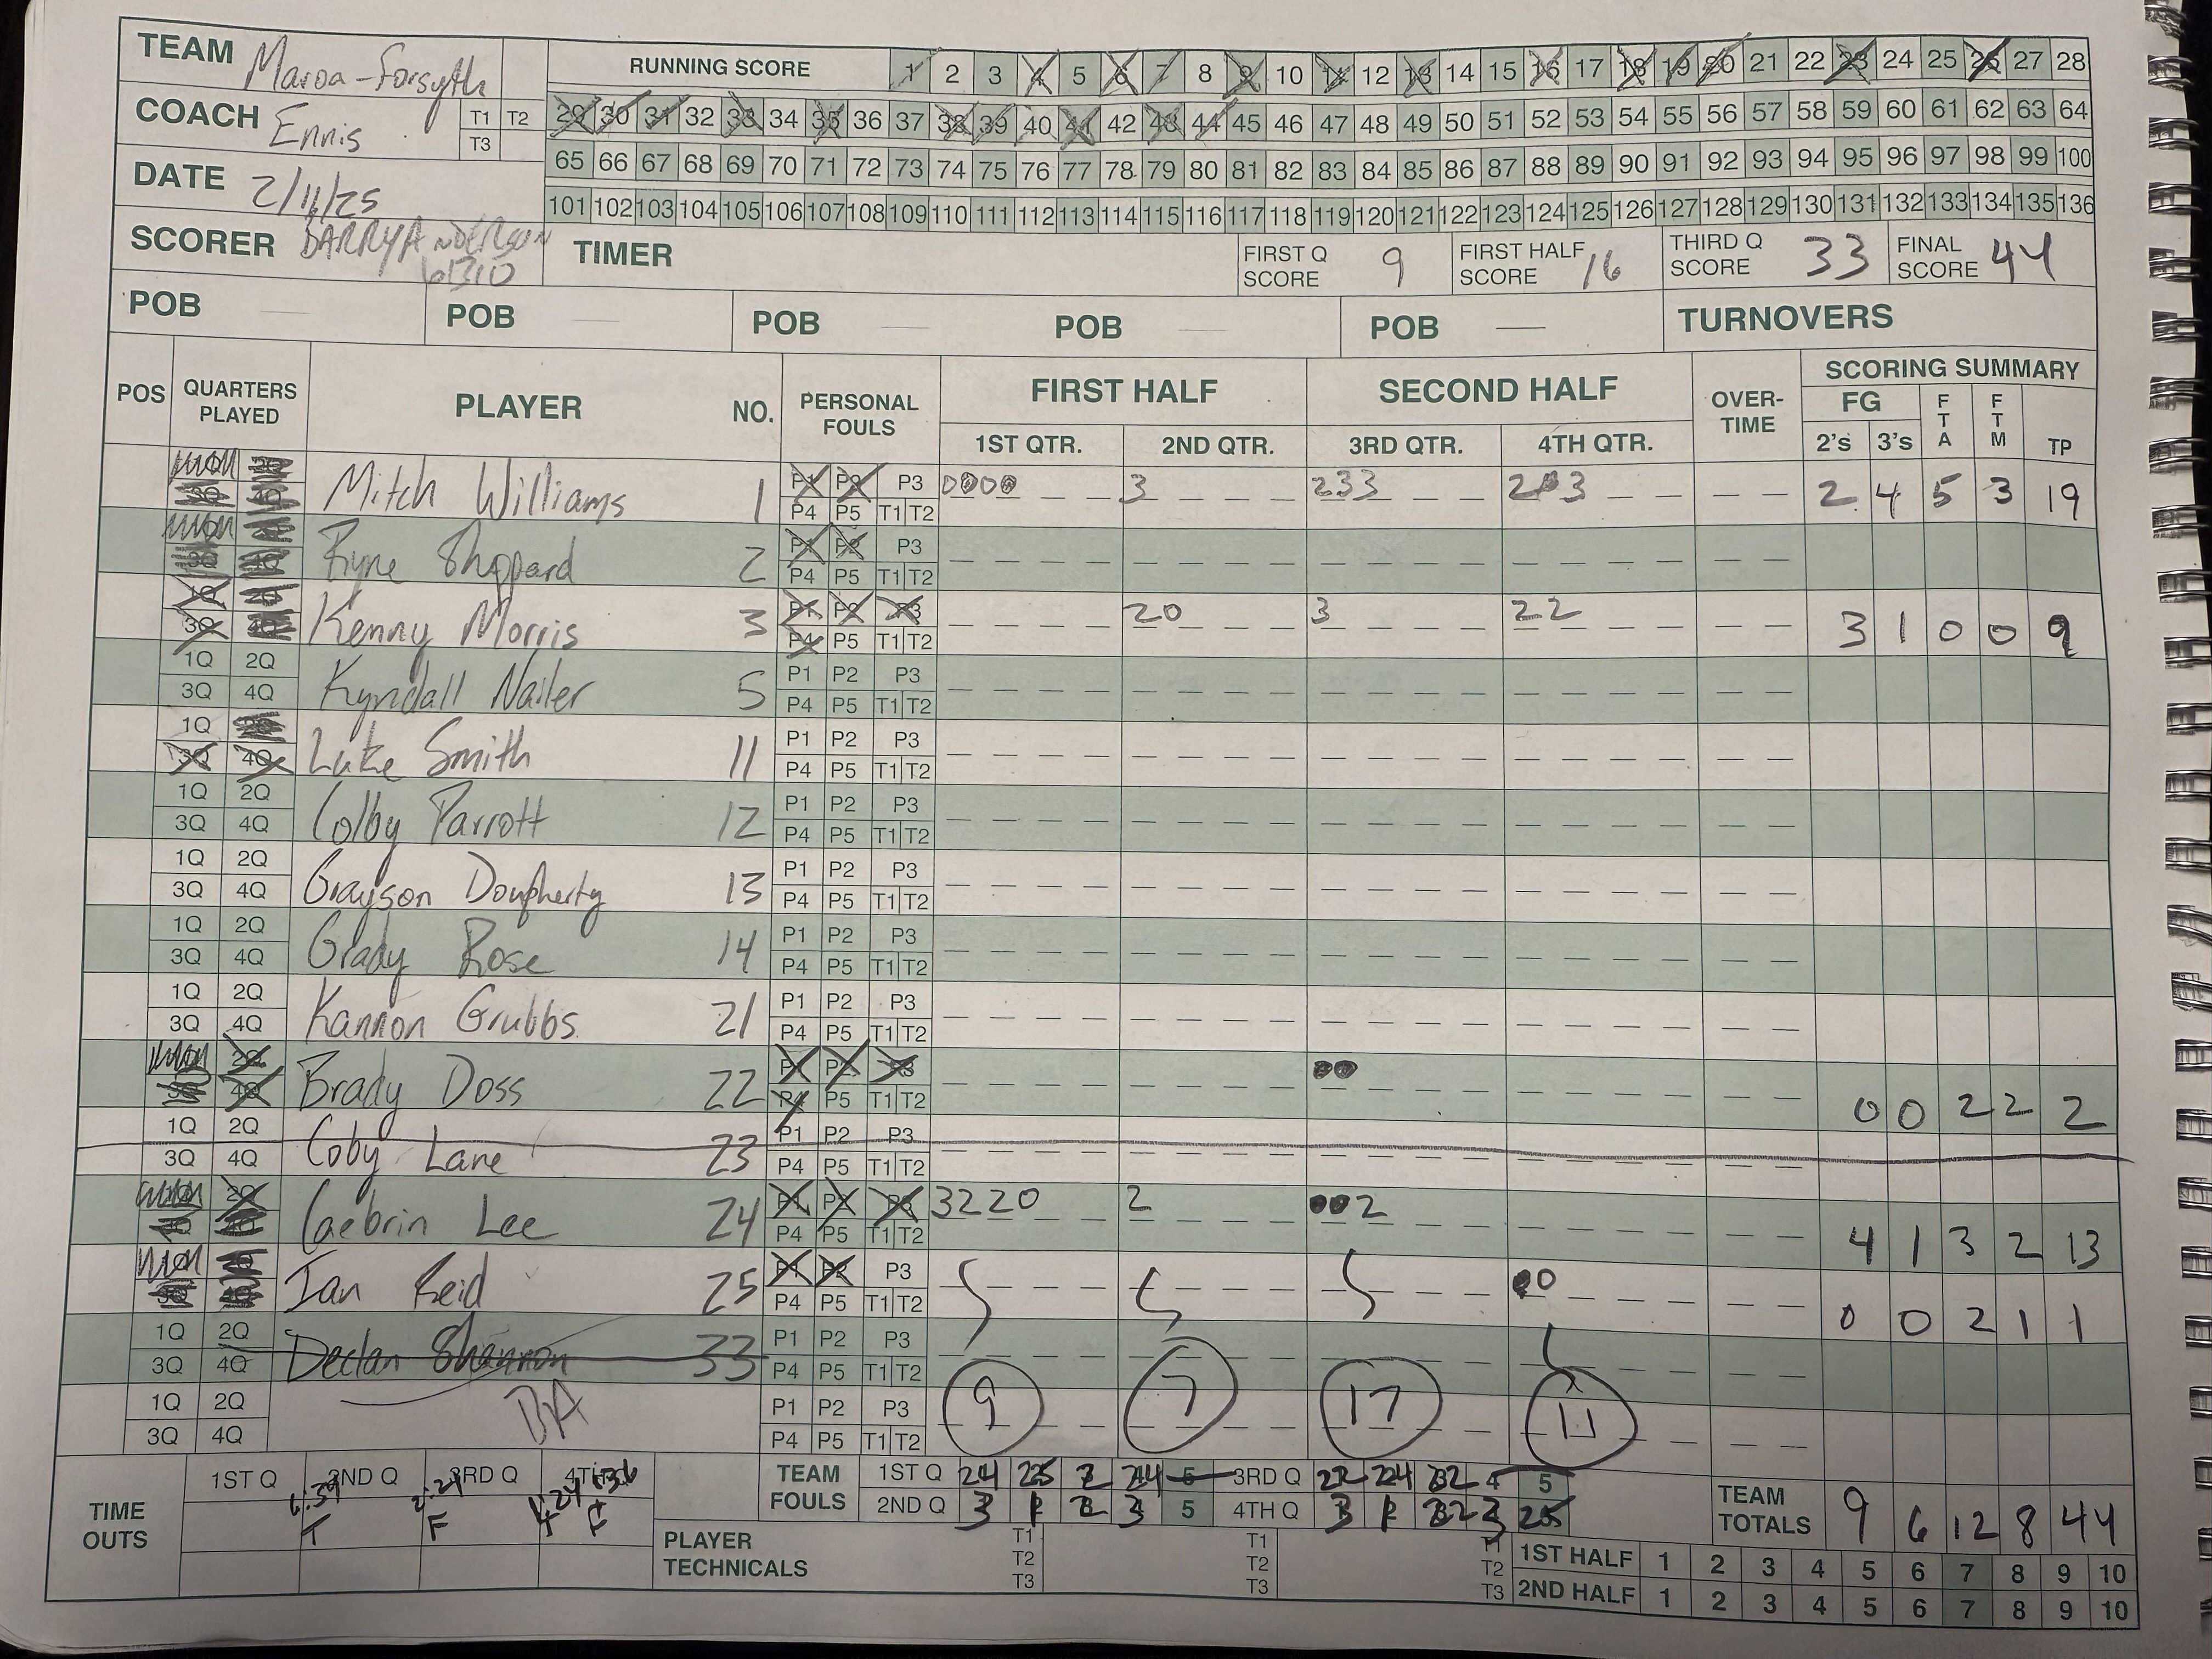 TEAM Maroa-Forsyth
RUNNING SCORE 1 2 3 4 5 6 7 8 9 10 11 12 13 14 15 16 17 18 19 20 21 22 23 24 25 26 27 28
COACH Ennis T1 T2 T3
29 30 31 32 33 34 35 36 37 38 39 40 41 42 43 44 45 46 47 48 49 50 51 52 53 54 55 56 57 58 59 60 61 62 63 64
65 66 67 68 69 70 71 72 73 74 75 76 77 78 79 80 81 82 83 84 85 86 87 88 89 90 91 92 93 94 95 96 97 98 99 100
DATE 2/11/25
101 102 103 104 105 106 107 108 109 110 111 112 113 114 115 116 117 118 119 120 121 122 123 124 125 126 127 128 129 130 131 132 133 134 135 136
SCORER BARRY ANDERSON 61310
TIMER
FIRST Q SCORE 9 FIRST HALF SCORE 16 THIRD Q SCORE 33 FINAL SCORE 44
POB POB POB POB POB TURNOVERS
POS QUARTERS PLAYED PLAYER NO. PERSONAL FOULS FIRST HALF SECOND HALF OVER-TIME SCORING SUMMARY
1ST QTR. 2ND QTR. 3RD QTR. 4TH QTR. FG 2's 3's FTA FTM TP
Mitch Williams 1 P1 P2 P3 P4 P5 T1 T2 3 233 2 4 5 3 19
Ryne Shappard 2 P1 P2 P3 P4 P5 T1 T2
1Q 2Q 3Q 4Q Kenny Morris 3 P1 P2 P3 P4 P5 T1 T2 20 3 22 3 1 0 0 9
1Q 2Q 3Q 4Q Kyndall Nailer 5 P1 P2 P3 P4 P5 T1 T2
1Q 2Q 3Q 4Q Luke Smith 11 P1 P2 P3 P4 P5 T1 T2
1Q 2Q 3Q 4Q Colby Parrott 12 P1 P2 P3 P4 P5 T1 T2
1Q 2Q 3Q 4Q Grayson Dougherty 13 P1 P2 P3 P4 P5 T1 T2
1Q 2Q 3Q 4Q Grady Rose 14 P1 P2 P3 P4 P5 T1 T2
1Q 2Q 3Q 4Q Kannon Grubbs 21 P1 P2 P3 P4 P5 T1 T2
2Q 4Q Brady Doss 22 P1 P2 P3 P4 P5 T1 T2 0 0 2 2 2
1Q 2Q 3Q 4Q Coby Lane 23 P1 P2 P3 P4 P5 T1 T2
2Q Caebrin Lee 24 P1 P2 P3 P4 P5 T1 T2 3220 2 2 4 1 3 2 13
Ian Reid 25 P1 P2 P3 P4 P5 T1 T2 0 0 0 2 1 1
1Q 2Q 3Q 4Q Declan Shannon 33 P1 P2 P3 P4 P5 T1 T2
1Q 2Q 3Q 4Q BA P1 P2 P3 P4 P5 T1 T2 9 7 17 11
TIME OUTS 1ST Q 2ND Q 3RD Q 4TH Q
T F F
TEAM FOULS 1ST Q 24 25 2 24 5 3RD Q 22 24 4 5
2ND Q 3 3 5 4TH Q 3 25
TEAM TOTALS 9 6 12 8 44
PLAYER TECHNICALS T1 T2 T3 T1 T2 T3 T1 T2 T3
1ST HALF 1 2 3 4 5 6 7 8 9 10
2ND HALF 1 2 3 4 5 6 7 8 9 10